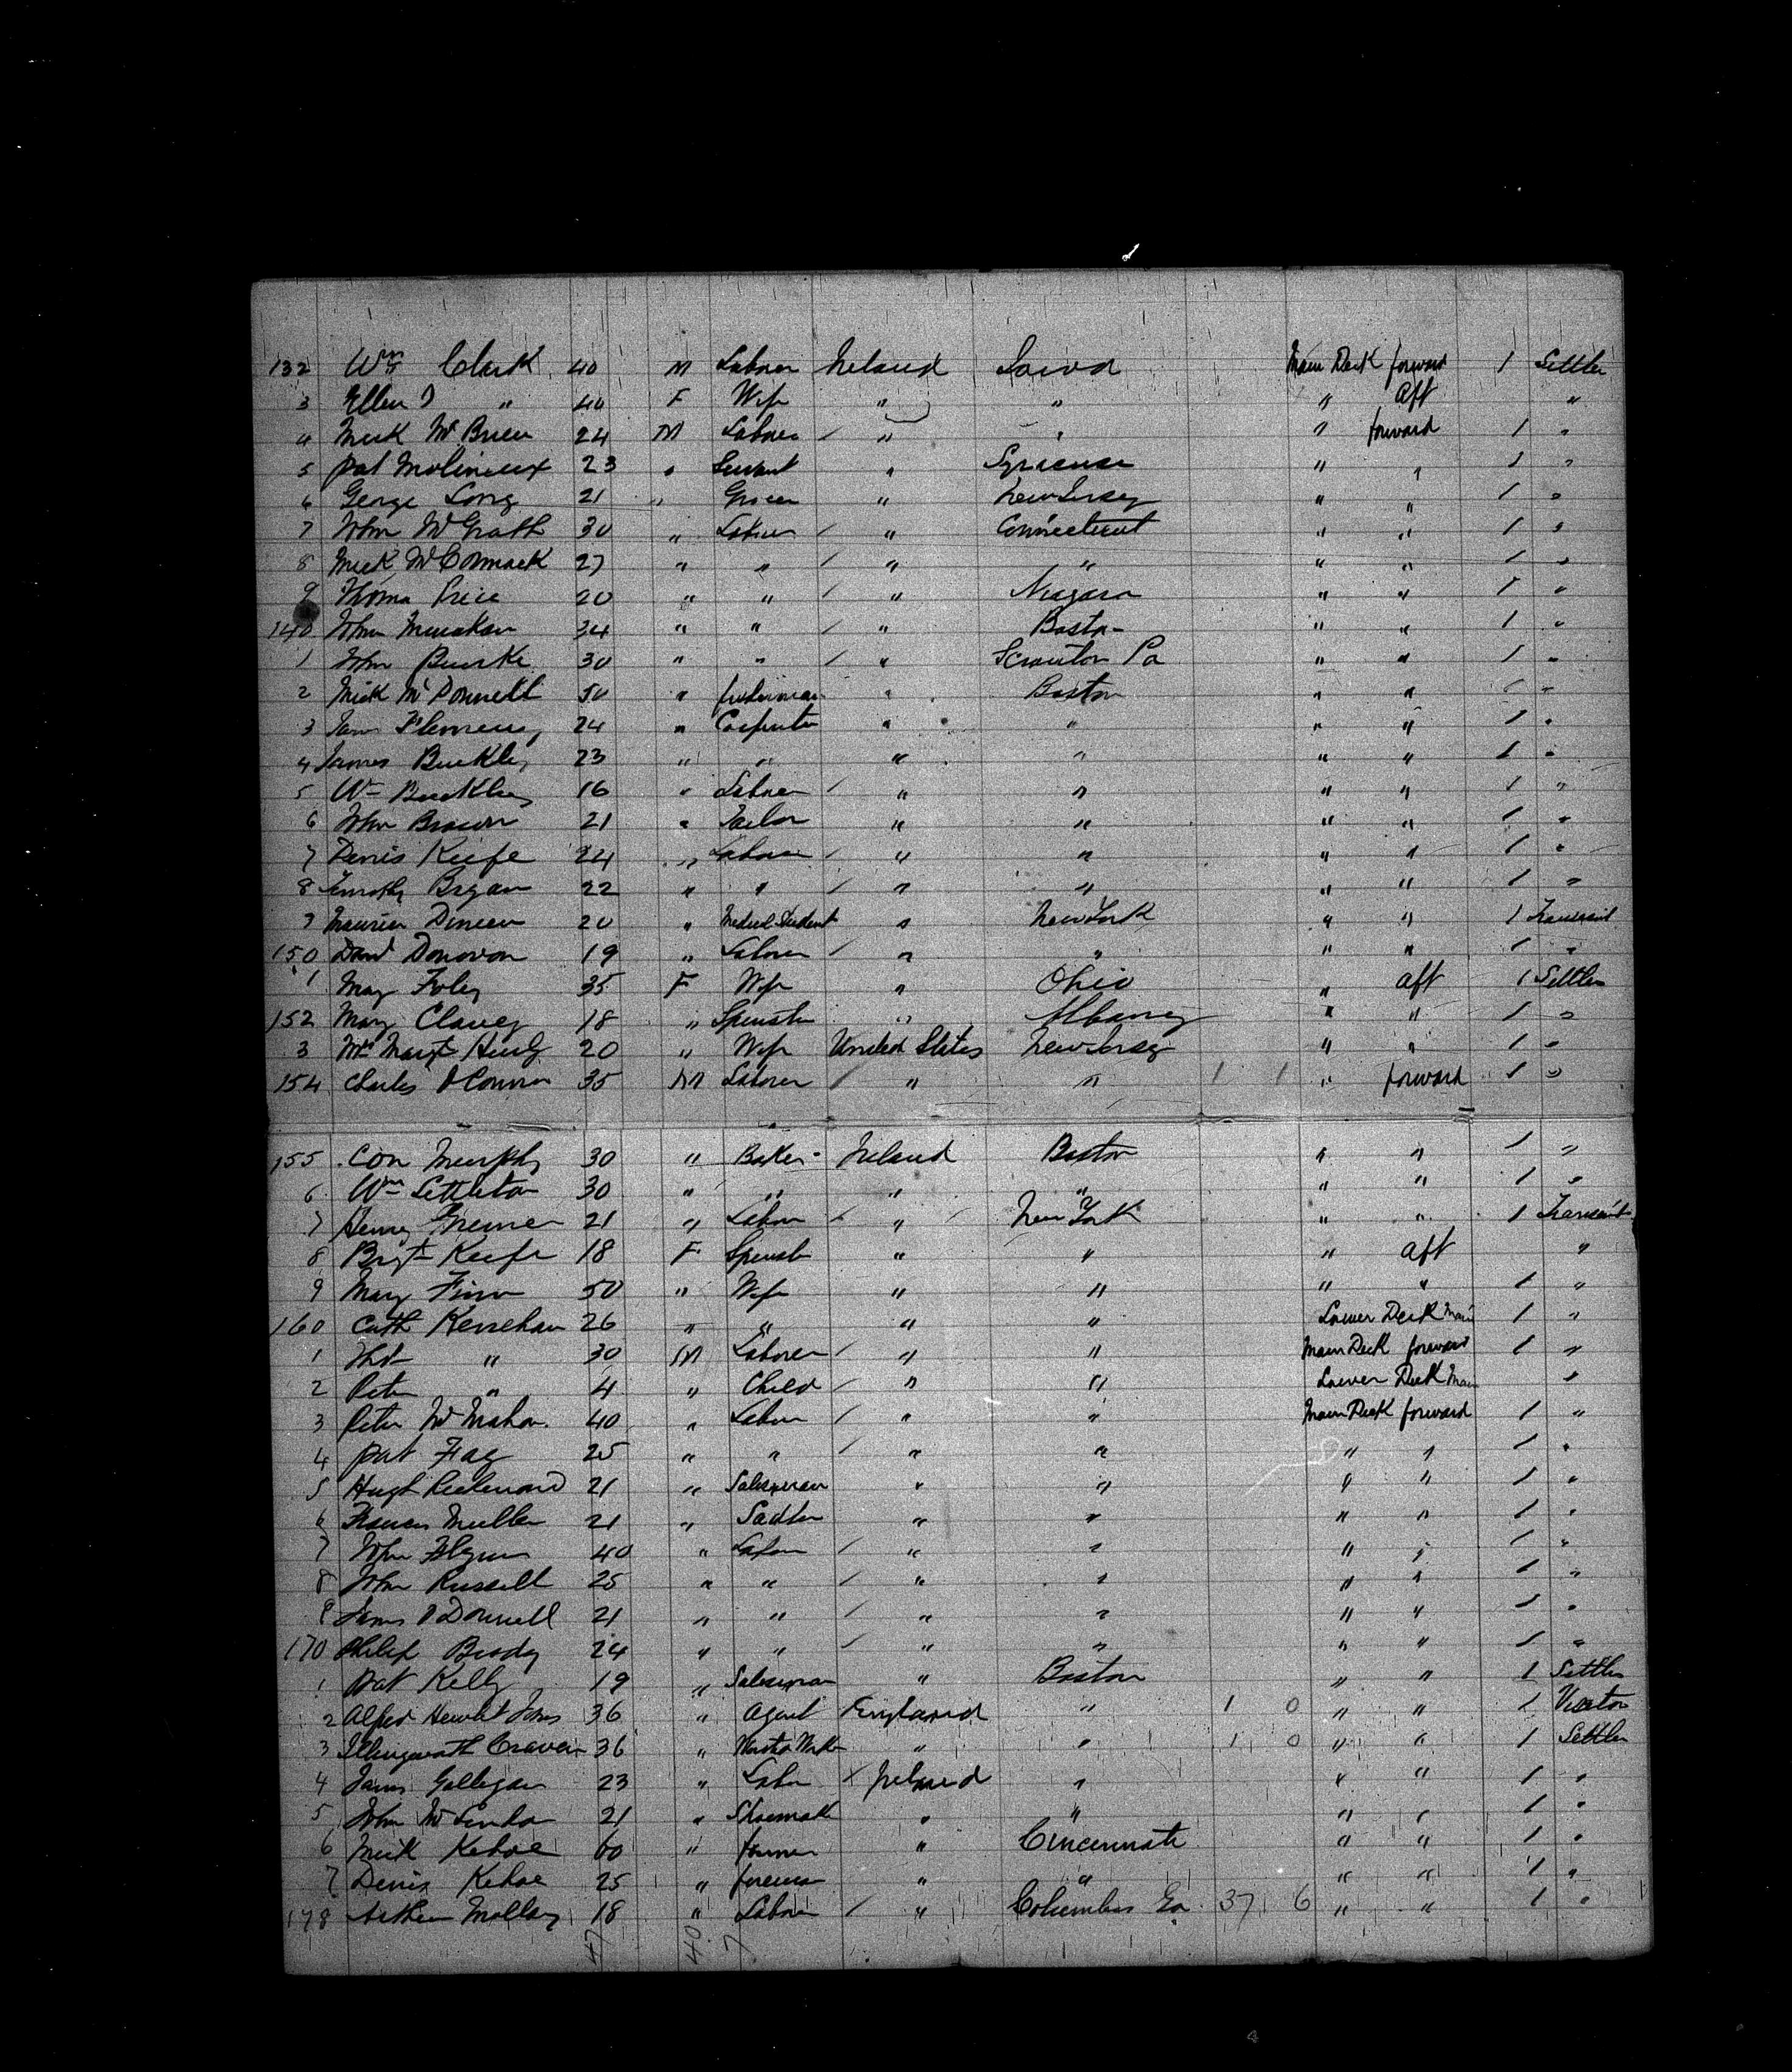 132 Wm Clark 40 M Laborer Ireland Main Deck forward 1 Settler
3 Ellen " 40 F Wife " " " Aft "
4 Mick McBrien 24 M Laborer / " " " forward 1 "
5 Pat Molineux 23 " Servant " Syracuse " " 1 "
6 George Long 21 " Grocer " New Jersey " " 1 "
7 John McGrath 30 " Laborer / " Connecticut " " 1 "
8 Mick McCormack 27 " " / " " " " 1 "
9 Thomas Price 20 " " / " Niagara " " 1 "
140 John 34 " " / " Boston " " 1 "
1 John Burke 30 " " / " Scranton Pa " " 1 "
2 Mick McDonnell 50 " fisherman " Boston " " 1 "
3 Flemeng 24 " Carpenter " " " " 1 "
4 James Buckley 23 " " " " " " 1 "
5 Wm Buckley 16 " Laborer / " " " " 1 "
6 John Brown 21 " Tailor " " " " 1 "
7 Denis Keefe 24 " Laborer / " " " " 1 "
8 Timothy Bryan 22 " " / " " " " 1 "
9 Maurice Dineen 20 " Medical Student " New York " " 1 Transient
150 David Donovan 19 " Laborer / " " " " 1 "
1 Mary Foley 35 F Wife " Ohio " Aft 1 Settler
152 Mary Clancy 18 " Spinster " Albany " " 1 "
3 Mrs Margt 20 " Wife United States New Jersey " " 1 "
154 Charles O'Connor 35 M Laborer / " " 1 1 " forward 1 "
155 Con Murphy 30 " Baker Ireland Boston " " 1 "
6 Wm Lettleton 30 " " " " " " 1 "
7 Henry 21 " Labor / " New York " " 1 Transient
8 Brgt Keefe 18 F Spinster " " " Aft "
9 Mary Finn 50 " Wife " " " " 1 "
160 Cath Kerrehan 26 " " " " Lower Deck Main 1 "
1 Thos " 30 M Laborer / " " Main Deck forward 1 "
2 Peter " 4 " Child / " " Lower Deck Main "
3 Peter McMahon 40 " Labor / " " Main Deck forward 1 "
4 Pat 25 " " / " " " " 1 "
5 Hugh Redmond 21 " Salesman " " " " 1 "
6 Francis Muller 21 " Sadler " " " " 1 "
7 John Flynn 40 " Labor / " " " " 1 "
8 John Russell 25 " " / " " " " 1 "
9 James O'Donnell 21 " " / " " " " 1 "
170 Philip Brody 24 " " / " " " " 1 "
1 Pat Kelly 19 " Salesman " Boston " " 1 Settler
2 Alfred Hewlet Jones 36 " Agent England " 1 0 " " 1 Visitor
3 Illingworth Craven 36 " " " 1 0 " " 1 Settler
4 James Gallegan 23 " Labor x Ireland " " " 1 "
5 John 21 " Shoemaker " " " " 1 "
6 Mick Kehoe 60 " farmer " Cincinnati " " 1 "
7 Denis Kehoe 25 " foreman " " " " 1 "
178 Arthur Mollay 18 " Laborer / " Columbus Ga 37 6 " " 1 "
47 40 7